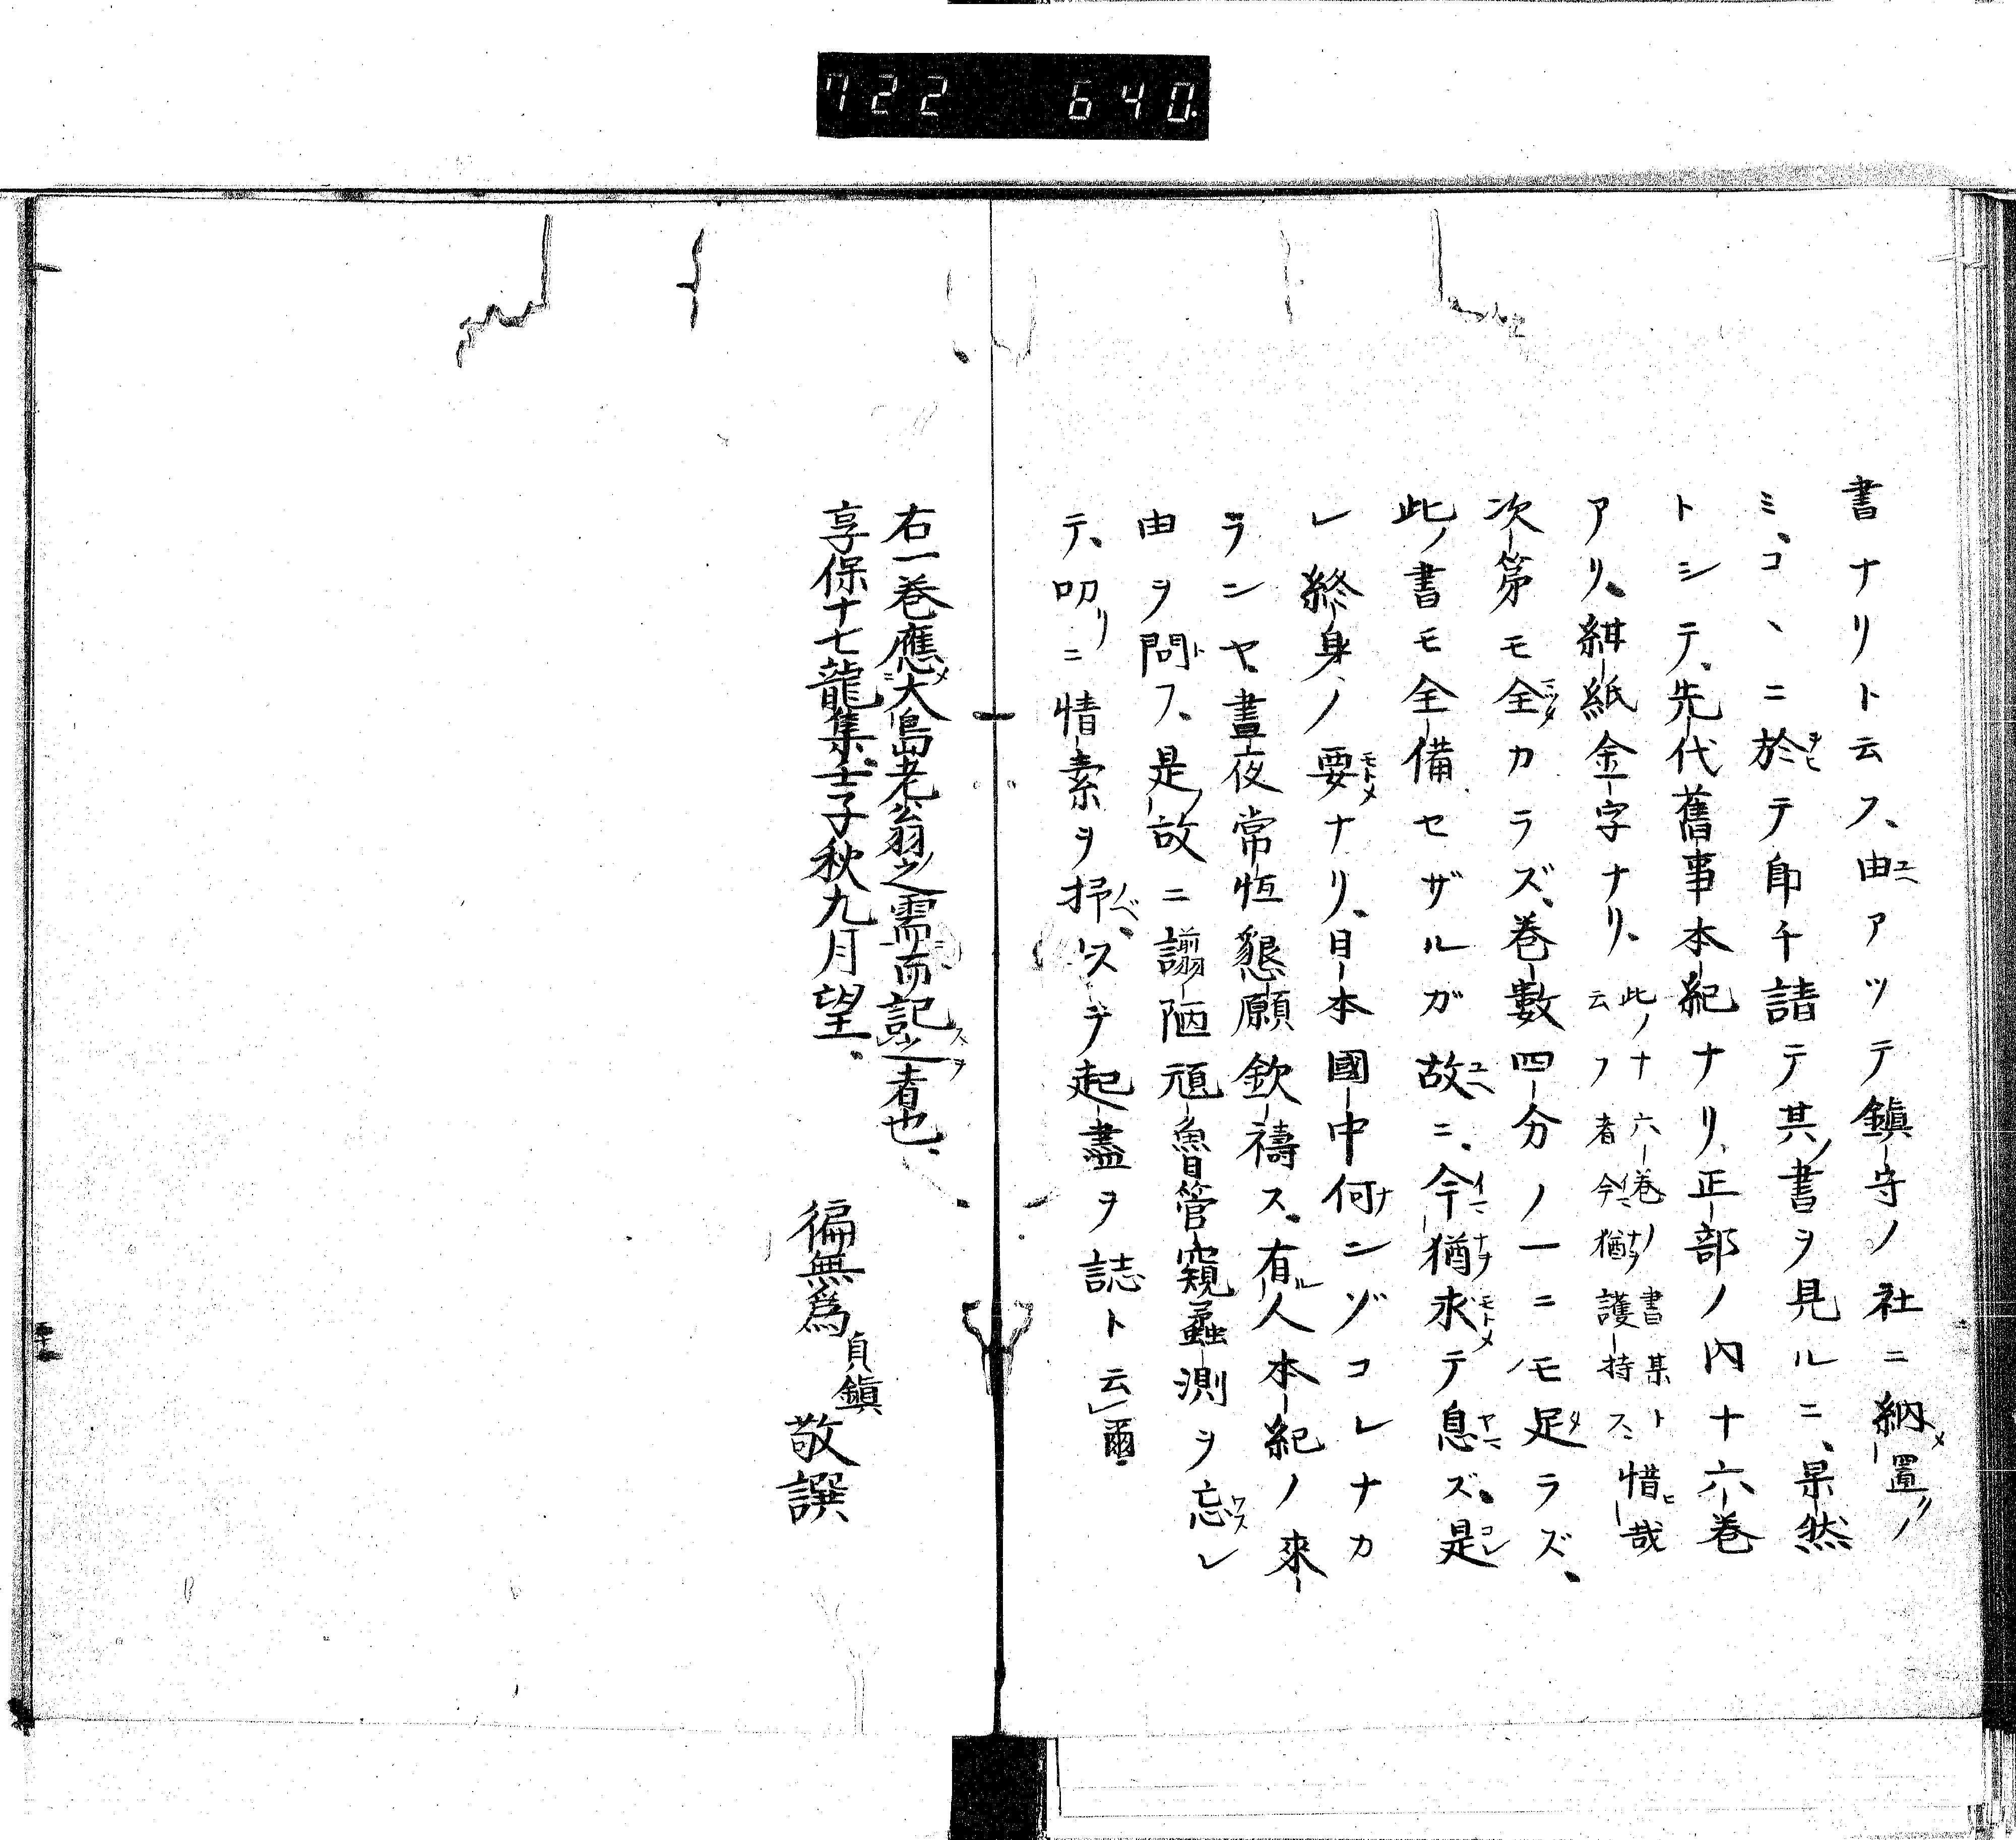 722 640
書ナリト云フ、由アツテ鎭守ノ社ニ納置ノ
ミ、コヽニ於テ即チ請テ其ノ書ヲ見ルニ、果然
トシテ、先代舊事本紀ナリ、正部ノ内十六巻
アリ、紺紙金字ナリ、此ノ十六巻ノ書某ト云フ者今猶護持ス惜哉
次第モ全カラズ、巻數四分ノ一ニモ足ラズ、
此ノ書モ全備セザルガ故ニ、今猶求テ息ズ、是
レ終身ノ要ナリ、日本國中何ンゾコレナカ
ランヤ、晝夜常恒懇願欽禱ス、有ル人本紀ノ來
由ヲ問フ、是ノ故ニ謭陋頑魯管窺蠡測ヲ忘レ
テ、叨リニ情素ヲ抒ベ、スデ起盡ヲ誌ト云爾
右一巻應大島老翁之需而記之者也、
享保十七龍集壬子秋九月望、
徧無爲 貞鎭 敬譔